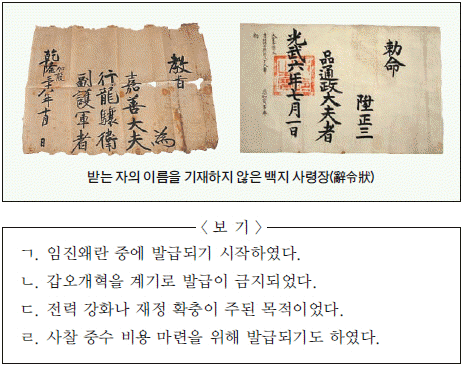 敎旨
爲
嘉善大夫
行龍驤衛
副護軍者
年十月 日
勅命
陞正三
品通政大夫者
光武六年七月一日
받는 자의 이름을 기재하지 않은 백지 사령장(辭令狀)
〈 보 기 〉
ㄱ. 임진왜란 중에 발급되기 시작하였다.
ㄴ. 갑오개혁을 계기로 발급이 금지되었다.
ㄷ. 전력 강화나 재정 확충이 주된 목적이었다.
ㄹ. 사찰 중수 비용 마련을 위해 발급되기도 하였다.